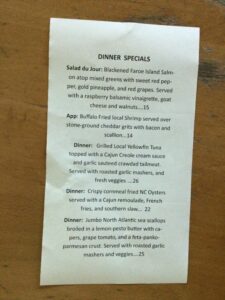 DINNER SPECIALS
Salad du Jour: Blackened Faroe Island Salm-
on atop mixed greens with sweet red pep-
per, gold pineapple, and red grapes. Served
with a raspberry balsamic vinaigrette, goat
cheese and walnuts....15
App: Buffalo Fried local Shrimp served over
stone-ground cheddar grits with bacon and
scallion...14
Dinner: Grilled Local Yellowfin Tuna
topped with a Cajun Creole cream sauce
and garlic sauteed crawdad tailmeat.
Served with roasted garlic mashers, and
fresh veggies ...26
Dinner: Crispy cornmeal fried NC Oysters
served with a Cajun remoulade, French
fries, and southern slaw... 22
Dinner: Jumbo North Atlantic sea scallops
broiled in a lemon pesto butter with ca-
pers, grape tomato, and a feta-panko-
parmesan crust. Served with roasted garlic
mashers and veggies....25